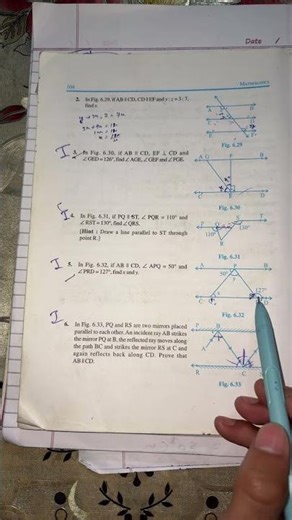 Date
104
MATHEMATICS
2. In Fig. 6.29, if AB || CD, CD || EF and y : z = 3 : 7,
find x.
Fig. 6.29
3. In Fig. 6.30, if AB || CD, EF ⊥ CD and
∠GED = 126°, find ∠AGE, ∠GEF and ∠FGE.
Fig. 6.30
4. In Fig. 6.31, if PQ || ST, ∠ PQR = 110° and
∠ RST = 130°, find ∠ QRS.
[Hint : Draw a line parallel to ST through
point R.]
110°
130°
Fig. 6.31
5. In Fig. 6.32, if AB || CD, ∠ APQ = 50° and
∠ PRD = 127°, find x and y.
50°
127°
Fig. 6.32
6. In Fig. 6.33, PQ and RS are two mirrors placed
parallel to each other. An incident ray AB strikes
the mirror PQ at B, the reflected ray moves along
the path BC and strikes the mirror RS at C and
again reflects back along CD. Prove that
AB || CD.
Fig. 6.33